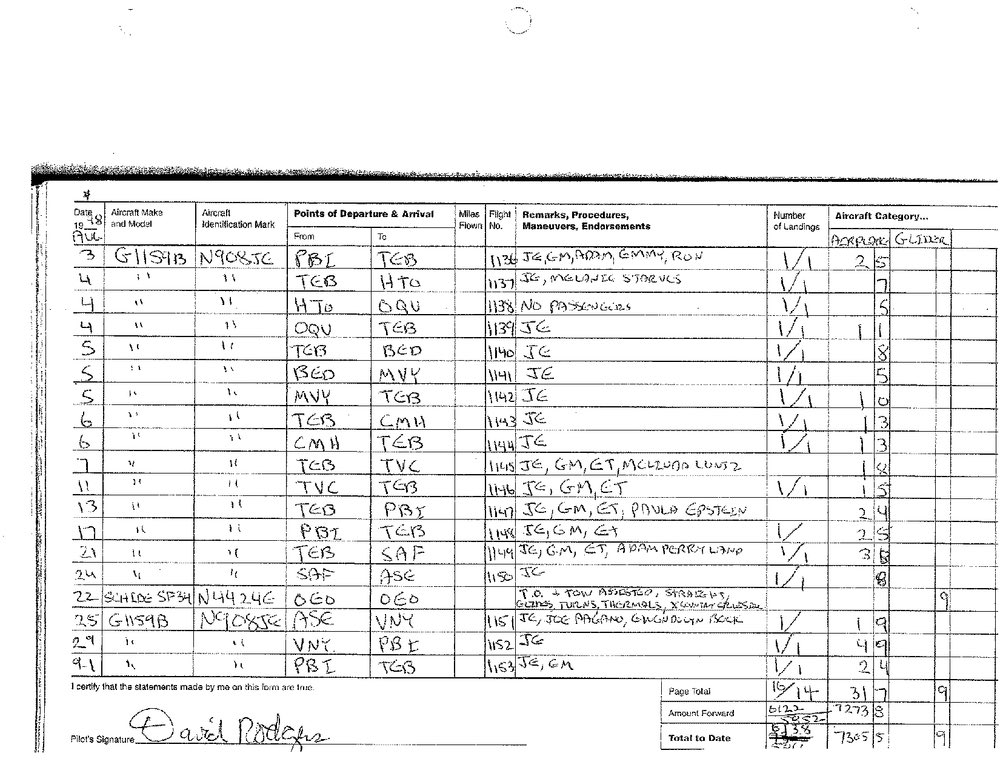 *
Date 1998 Aircraft Make and Model Aircraft Identification Mark Points of Departure & Arrival Miles Flown Flight No. Remarks, Procedures, Maneuvers, Endorsements Number of Landings Aircraft Category...
AUG From To AIRPLANE GLIDER
3 G1159B N908JE PBI TEB 1136 JE, GM, ADAM, EMMY, RON 1/1 2 5
4 " " TEB HTO 1137 JE, MELANIE STARNES 1/1 7
4 " " HTO OQU 1138 NO PASSENGERS 1/1 5
4 " " OQU TEB 1139 JE 1/1 1 1
5 " " TEB BED 1140 JE 1/1 8
5 " " BED MVY 1141 JE 1/1 5
5 " " MVY TEB 1142 JE 1/1 1 0
6 " " TEB CMH 1143 JE 1/1 1 3
6 " " CMH TEB 1144 JE 1/1 1 3
7 " " TEB TVC 1145 JE, GM, ET, MELINDA LUNTZ 1 8
11 " " TVC TEB 1146 JE, GM, ET 1/1 1 5
13 " " TEB PBI 1147 JE, GM, ET, PAULA EPSTEIN 2 4
17 " " PBI TEB 1148 JE, GM, ET 1/ 2 5
21 " " TEB SAF 1149 JE, GM, ET, ADAM PERRY LANG 1/1 3 8
24 " " SAF ASE 1150 JE 1/1 8
22 N4424E T.O. + TOW ASSISTED, STRAIGHT,
GLIDES, TURNS, THERMALS, 9
25 G1159B N908JE ASE VNY 1151 JE, JOE PAGANO, GWENDOLYN BECK 1/ 1 9
29 " " VNY PBI 1152 JE 1/1 4 9
9-1 " " PBI TEB 1153 JE, GM 1/1 2 4
I certify that the statements made by me on this form are true.
Page Total 16/14 31 7 9
Amount Forward 6122 7273 8
Pilot's Signature David Rodgers
Total to Date 6138 7305 5 9